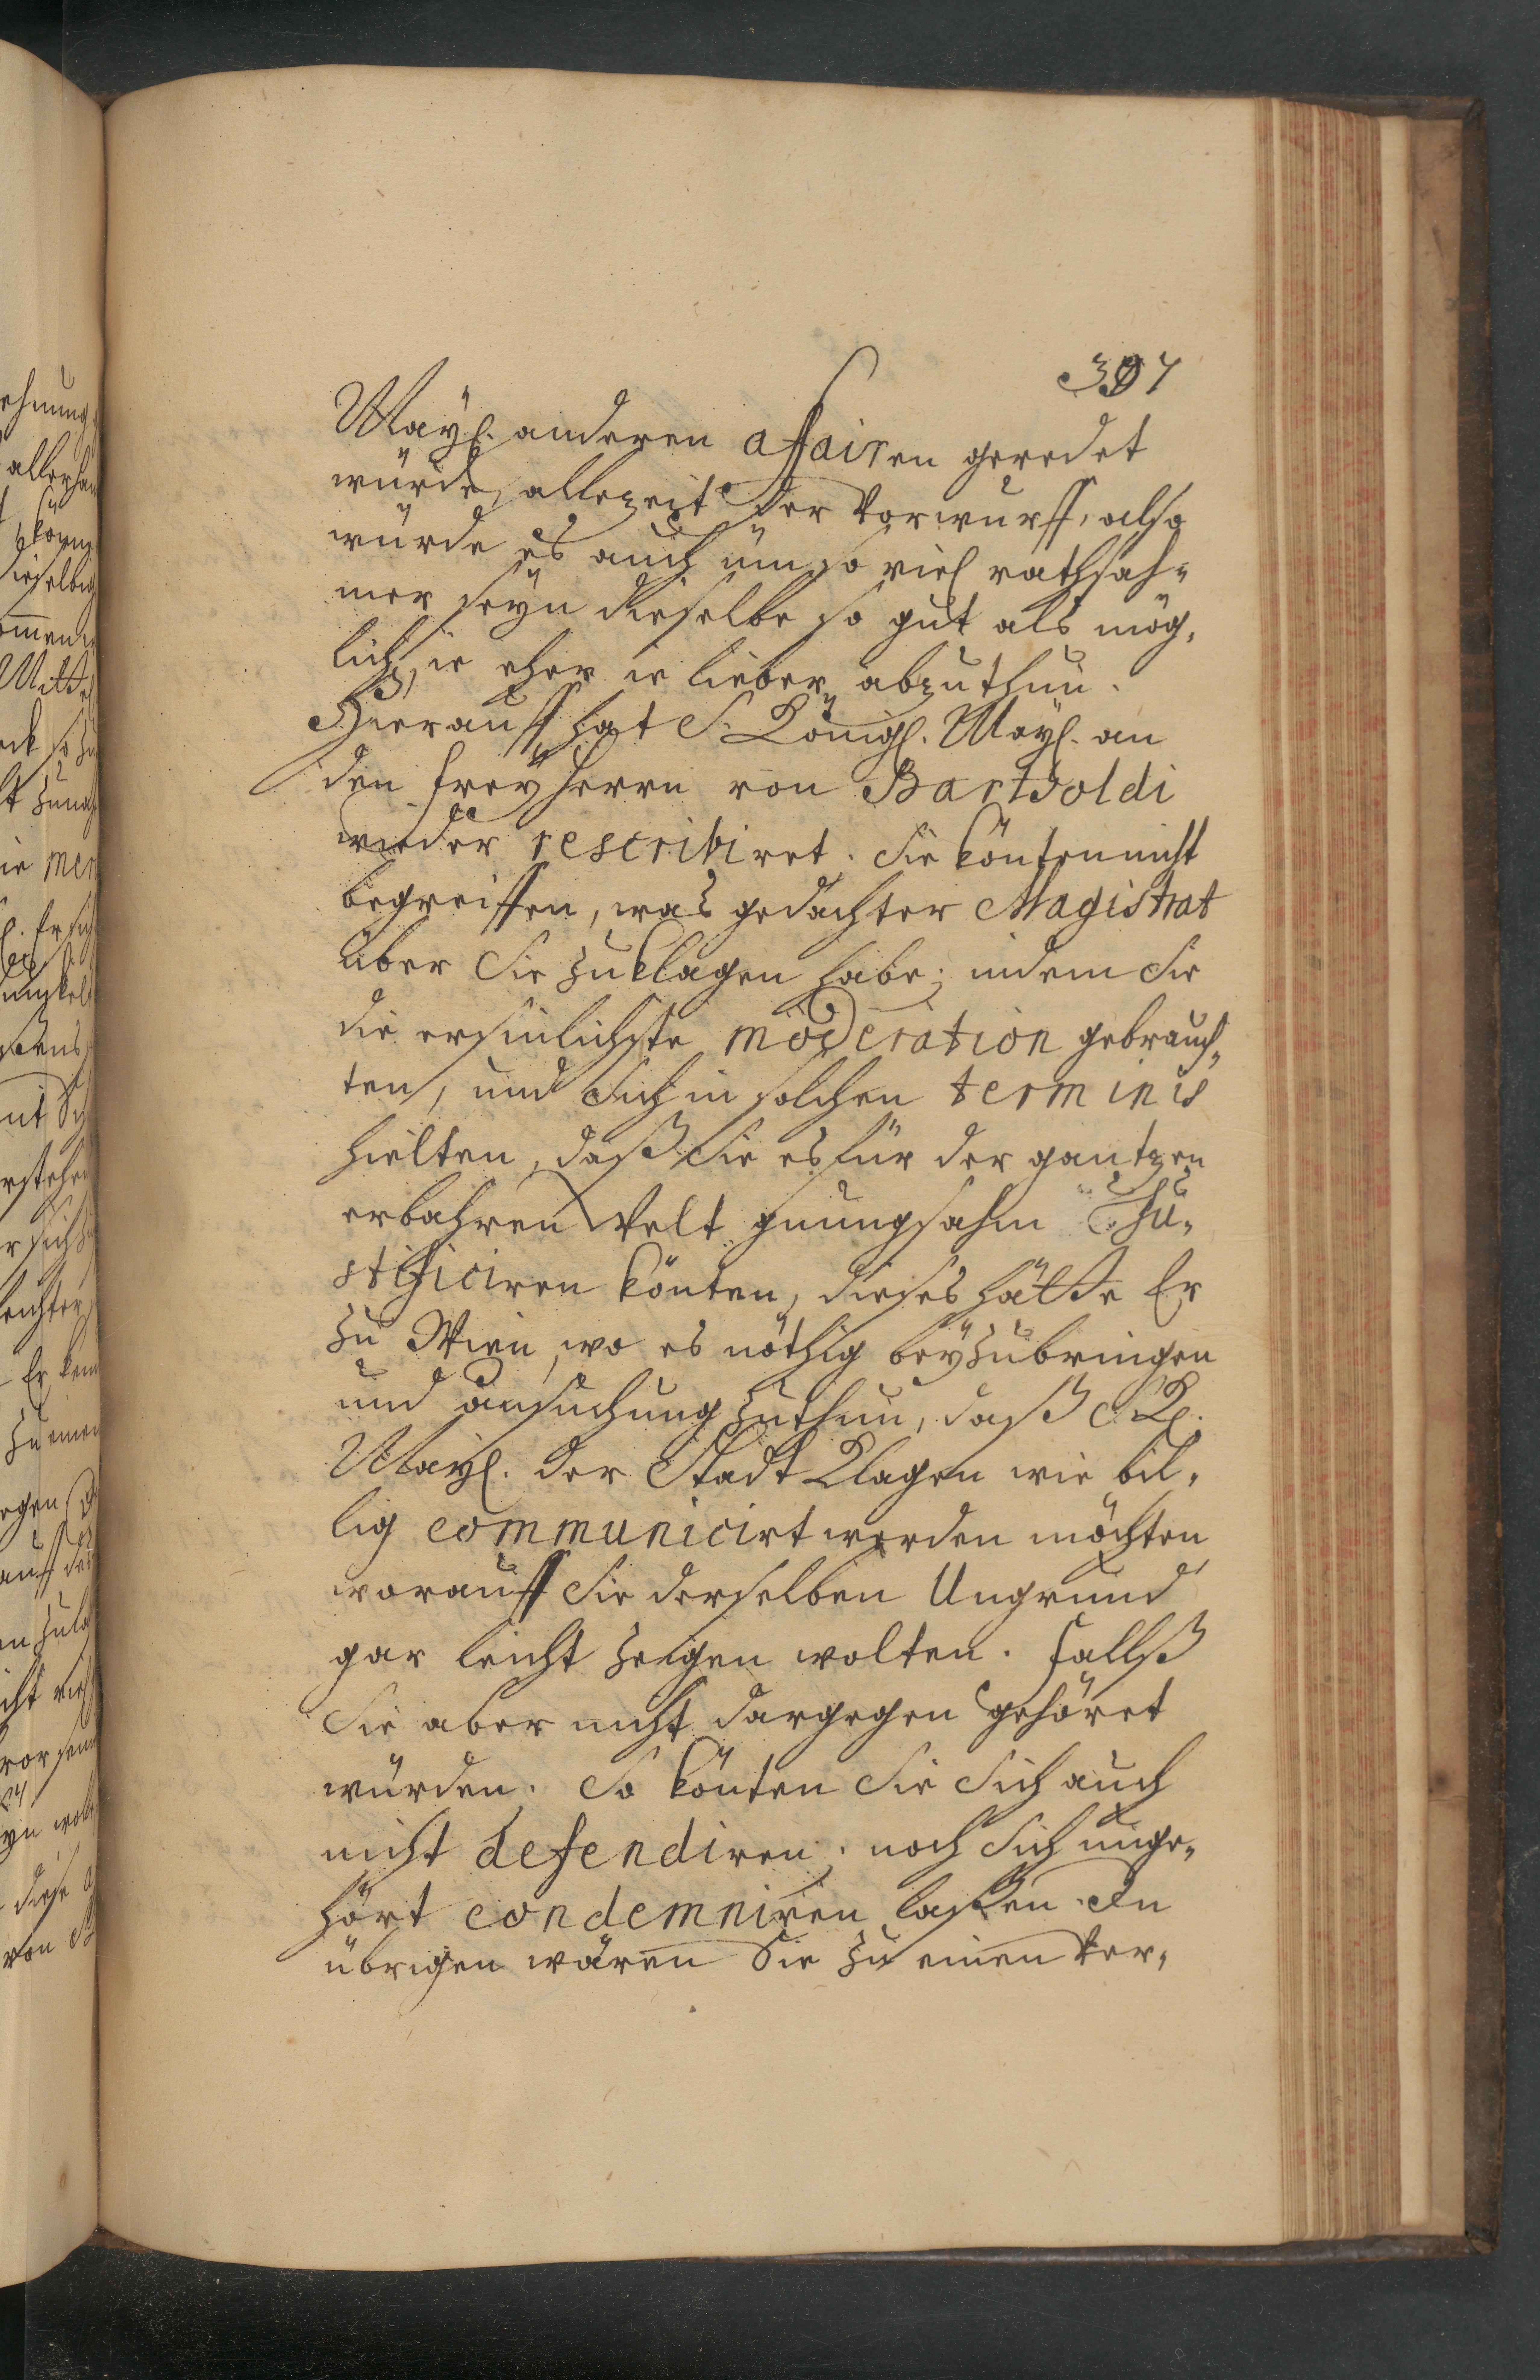 397
Mayl. anderen affairen geredet
würde, allezeit der Vorwurff, also
würde es auch üm so viel rathsah-
mer seÿn dieselbe so gut als mög-
lich, ie eher ie lieber, abzuthun.
Hierauff hat S. Königl. Mayl. an
den freÿherrn von Bartholdi
wieder rescribiret. Sie könten nicht
begreiffen, was gedachter Magistrat
über Sie zuklagen habe; indem Sie
die ersinlichste moderation gebrauch-
ten, und Sich in solchen terminis
hielten, daß Sie es für der gantzen
erbahren Welt gnungsahm Ju-
stificiren könten, dieses hätte Er
zu Wien, wo es nöthig beÿzubringen
und ansuchung zuthun, daß S. Kl.
Mayl. der Stadt Klagen wie bil-
lig communicirt werden möchten
worauff Sie derselben Ungrund
gar leicht zeigen wolten. Fallß
Sie aber nicht dargegen gehöret
würden. So könten Sie Sich auch
nicht defendiren; noch Sich unge-
hört condemniren laßen. In
übrigen wären Sie zu einen Ver-